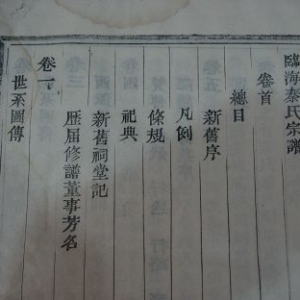 臨海秦氏宗譜
卷首
總目
新舊序
凡例
條規
祀典
新舊祠堂記
歷届修譜董事芳名
卷一
世系圖傳